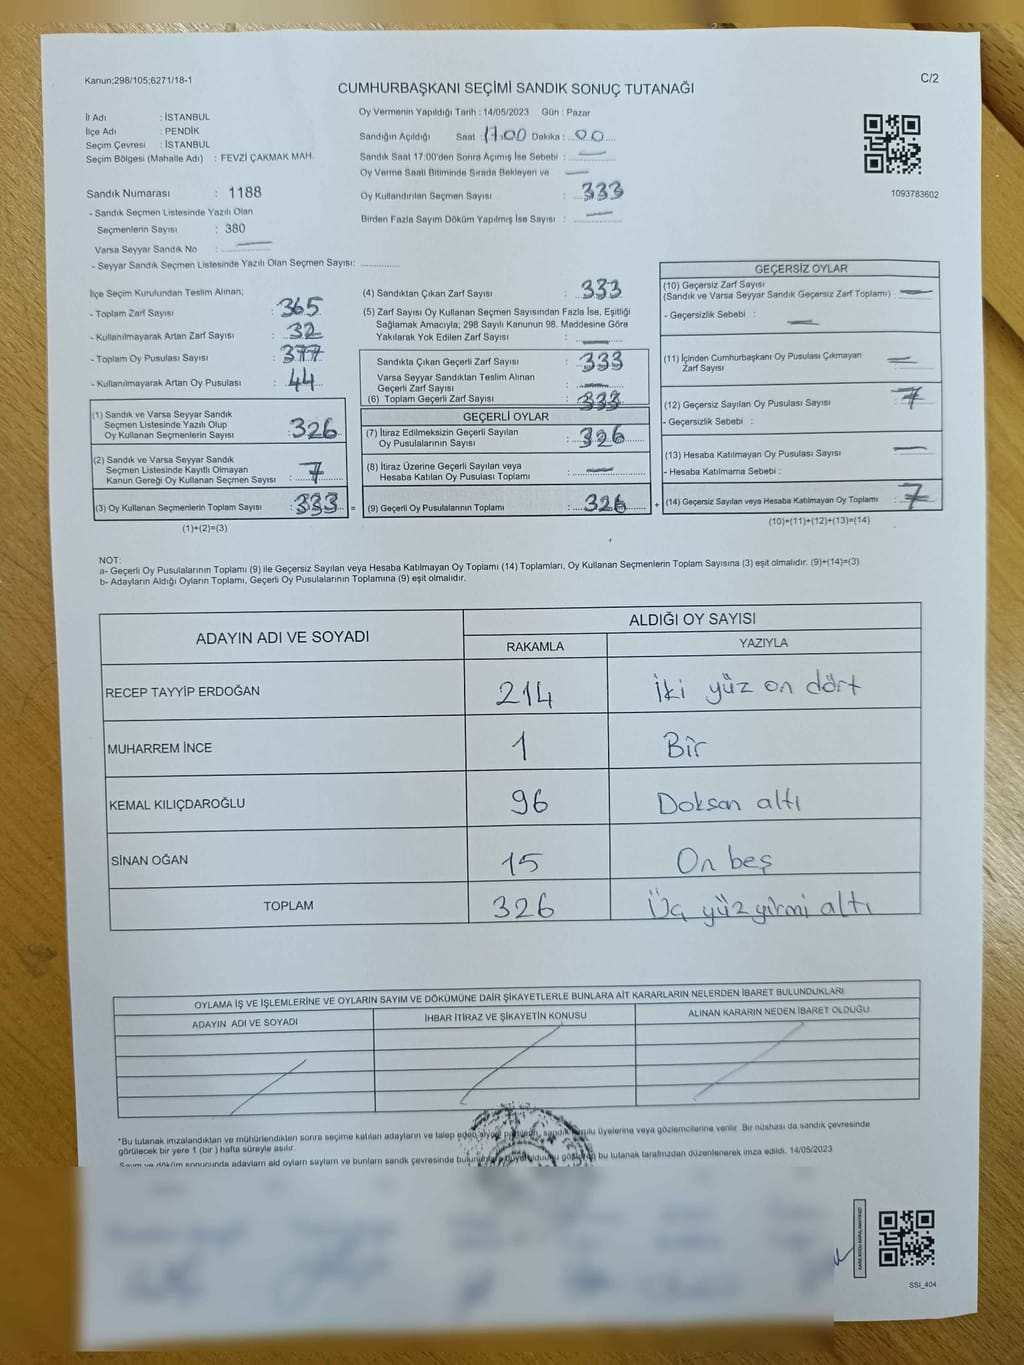 Kanun;298/105;6271/18-1
C/2
CUMHURBAŞKANI SEÇİMİ SANDIK SONUÇ TUTANAĞI
İl Adı : İSTANBUL
İlçe Adı : PENDİK
Seçim Çevresi : İSTANBUL
Seçim Bölgesi (Mahalle Adı) : FEVZİ ÇAKMAK MAH.
Oy Vermenin Yapıldığı Tarih : 14/05/2023 Gün : Pazar
Sandığın Açıldığı Saat : 17.00 Dakika : 00
Sandık Saat 17:00'den Sonra Açımış İse Sebebi : —
Oy Verme Saati Bitiminde Sırada Bekleyen ve —
Oy Kullandırılan Seçmen Sayısı : 333
Birden Fazla Sayım Döküm Yapılmış İse Sayısı : —
1093783602
Sandık Numarası : 1188
- Sandık Seçmen Listesinde Yazılı Olan
Seçmenlerin Sayısı : 380
Varsa Seyyar Sandık No : —
- Seyyar Sandık Seçmen Listesinde Yazılı Olan Seçmen Sayısı: ..............
İlçe Seçim Kurulundan Teslim Alınan;
- Toplam Zarf Sayısı : 365
- Kullanılmayarak Artan Zarf Sayısı : 32
- Toplam Oy Pusulası Sayısı : 377
- Kullanılmayarak Artan Oy Pusulası : 44
(1) Sandık ve Varsa Seyyar Sandık
Seçmen Listesinde Yazılı Olup
Oy Kullanan Seçmenlerin Sayısı : 326
(2) Sandık ve Varsa Seyyar Sandık
Seçmen Listesinde Kayıtlı Olmayan
Kanun Gereği Oy Kullanan Seçmen Sayısı : 7
(3) Oy Kullanan Seçmenlerin Toplam Sayısı : 333 =
(1)+(2)=(3)
(4) Sandıktan Çıkan Zarf Sayısı : 333
(5) Zarf Sayısı Oy Kullanan Seçmen Sayısından Fazla İse, Eşitliği
Sağlamak Amacıyla; 298 Sayılı Kanunun 98. Maddesine Göre
Yakılarak Yok Edilen Zarf Sayısı : —
Sandıkta Çıkan Geçerli Zarf Sayısı : 333
Varsa Seyyar Sandıktan Teslim Alınan
Geçerli Zarf Sayısı : —
(6) Toplam Geçerli Zarf Sayısı : 333
GEÇERLİ OYLAR
(7) İtiraz Edilmeksizin Geçerli Sayılan
Oy Pusulalarının Sayısı : 326
(8) İtiraz Üzerine Geçerli Sayılan veya
Hesaba Katılan Oy Pusulası Toplamı : —
(9) Geçerli Oy Pusulalarının Toplamı : 326 +
GEÇERSİZ OYLAR
(10) Geçersiz Zarf Sayısı
(Sandık ve Varsa Seyyar Sandık Geçersiz Zarf Toplamı) : —
- Geçersizlik Sebebi : —
(11) İçinden Cumhurbaşkanı Oy Pusulası Çıkmayan
Zarf Sayısı —
(12) Geçersiz Sayılan Oy Pusulası Sayısı 7
- Geçersizlik Sebebi :
(13) Hesaba Katılmayan Oy Pusulası Sayısı —
- Hesaba Katılmama Sebebi :
(14) Geçersiz Sayılan veya Hesaba Katılmayan Oy Toplamı : 7
(10)+(11)+(12)+(13)=(14)
NOT:
a- Geçerli Oy Pusulalarının Toplamı (9) ile Geçersiz Sayılan veya Hesaba Katılmayan Oy Toplamı (14) Toplamları, Oy Kullanan Seçmenlerin Toplam Sayısına (3) eşit olmalıdır. (9)+(14)=(3)
b- Adayların Aldığı Oyların Toplamı, Geçerli Oy Pusulalarının Toplamına (9) eşit olmalıdır.
ADAYIN ADI VE SOYADI
ALDIĞI OY SAYISI
RAKAMLA YAZIYLA
RECEP TAYYİP ERDOĞAN 214 İki yüz on dört
MUHARREM İNCE 1 Bir
KEMAL KILIÇDAROĞLU 96 Doksan altı
SİNAN OĞAN 15 On beş
TOPLAM 326 Üç yüz yirmi altı
OYLAMA İŞ VE İŞLEMLERİNE VE OYLARIN SAYIM VE DÖKÜMÜNE DAİR ŞİKAYETLERLE BUNLARA AİT KARARLARIN NELERDEN İBARET BULUNDUKLARI
ADAYIN ADI VE SOYADI İHBAR İTİRAZ VE ŞİKAYETİN KONUSU ALINAN KARARIN NEDEN İBARET OLDUĞU
*Bu tutanak imzalandıktan ve mühürlendikten sonra seçime katılan adayların ve talep eden siyasi partilerin, sandık kurulu üyelerine veya gözlemcilerine verilir. Bir nüshası da sandık çevresinde
görülecek bir yere 1 (bir) hafta süreyle asılır.
Sayım ve döküm sonucunda adayların ald oyların sayların ve bunların sandk çevresinde bu tutanak tarafmzdan düzenlenerek imza edildi. 14/05/2023
KARE KODU KARALAMAYINIZ!
SSI_404